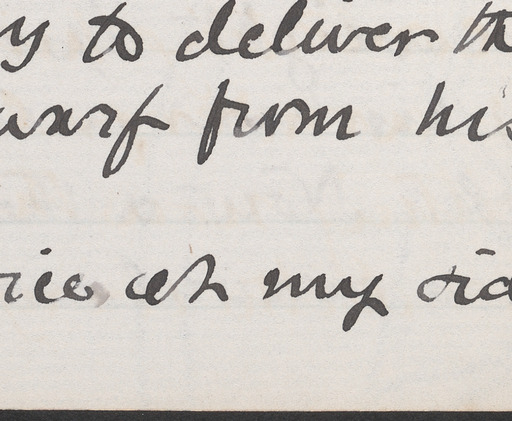 y to deliver th
warf from his
ice at my sid